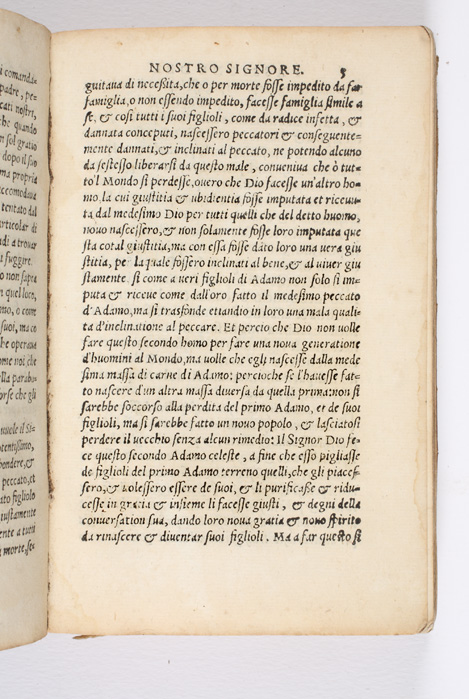 i comanda-
padre, pe-
cati nostri,
che quando
n sol gratio
dopo il suo
ma propria
ccomodaua
tentato dal
articolar di
di a trouar
i fuggire.
o non sapea
n quel loco,
me, o come
suoi, ma co
he operaua
ome noi che
lla parabo-
orse che gli
nuele il Si-
otentissimo,
bendere, &
peccato, et
ato figliolo
iustamente
ente a tutti
a morte, se-
NOSTRO SIGNORE. 5
guitaua di necessita, che o per morte fosse impedito da far
famiglia, o non essendo impedito, facesse famiglia simile a
se, & cosi tutti i suoi figlioli, come da radice infetta, &
dannata conceputi, nascessero peccatori & conseguente-
mente dannati, & inclinati al peccato, ne potendo alcuno
da se stesso liberarsi da questo male, conueniua che ò tut-
to'l Mondo si perdesse, ouero che Dio facesse un'altro ho-
mo, la cui giustitia & ubidientia fosse imputata et riceuu-
ta dal medesimo Dio per tutti quelli che del detto huomo,
nouo nascessero, & non solamente fosse loro imputata que
sta cotal giustitia, ma con essa fosse dato loro una uera giu
stitia, pe la quale fossero inclinati al bene, & al uiuer giu
stamente. si come a ueri figlioli di Adamo non solo si im-
puta & riceue come dall'oro fatto il medesimo peccato
d'Adamo, ma si trasfonde etiandio in loro una mala quali
ta d'inclinatione al peccare. Et percio che Dio non uolle
fare questo secondo homo per fare una noua generatione
d'huomini al Mondo, ma uolle che egli nascesse dalla mede
sima massa di carne di Adamo: percioche se l'hauesse fat-
to nascere d'un altra massa diuersa da quella prima: non si
sarebbe soccorso alla perdita del primo Adamo, et de suoi
figlioli, ma si sarebbe fatto un nouo popolo, & lasciatosi
perdere il uecchio senza alcun rimedio: Il Signor Dio fe-
ce questo secondo Adamo celeste, a fine che esso pigliasse
de figlioli del primo Adamo terreno quelli, che gli piaces-
sero, & uolessero essere de suoi, & li purificasse & ridu-
cesse in gratia & insieme li facesse giusti, & degni della
conuersation sua, dando loro noua gratia & nouo spirito
da rinascere & diuentar suoi figlioli. Ma a far questo si